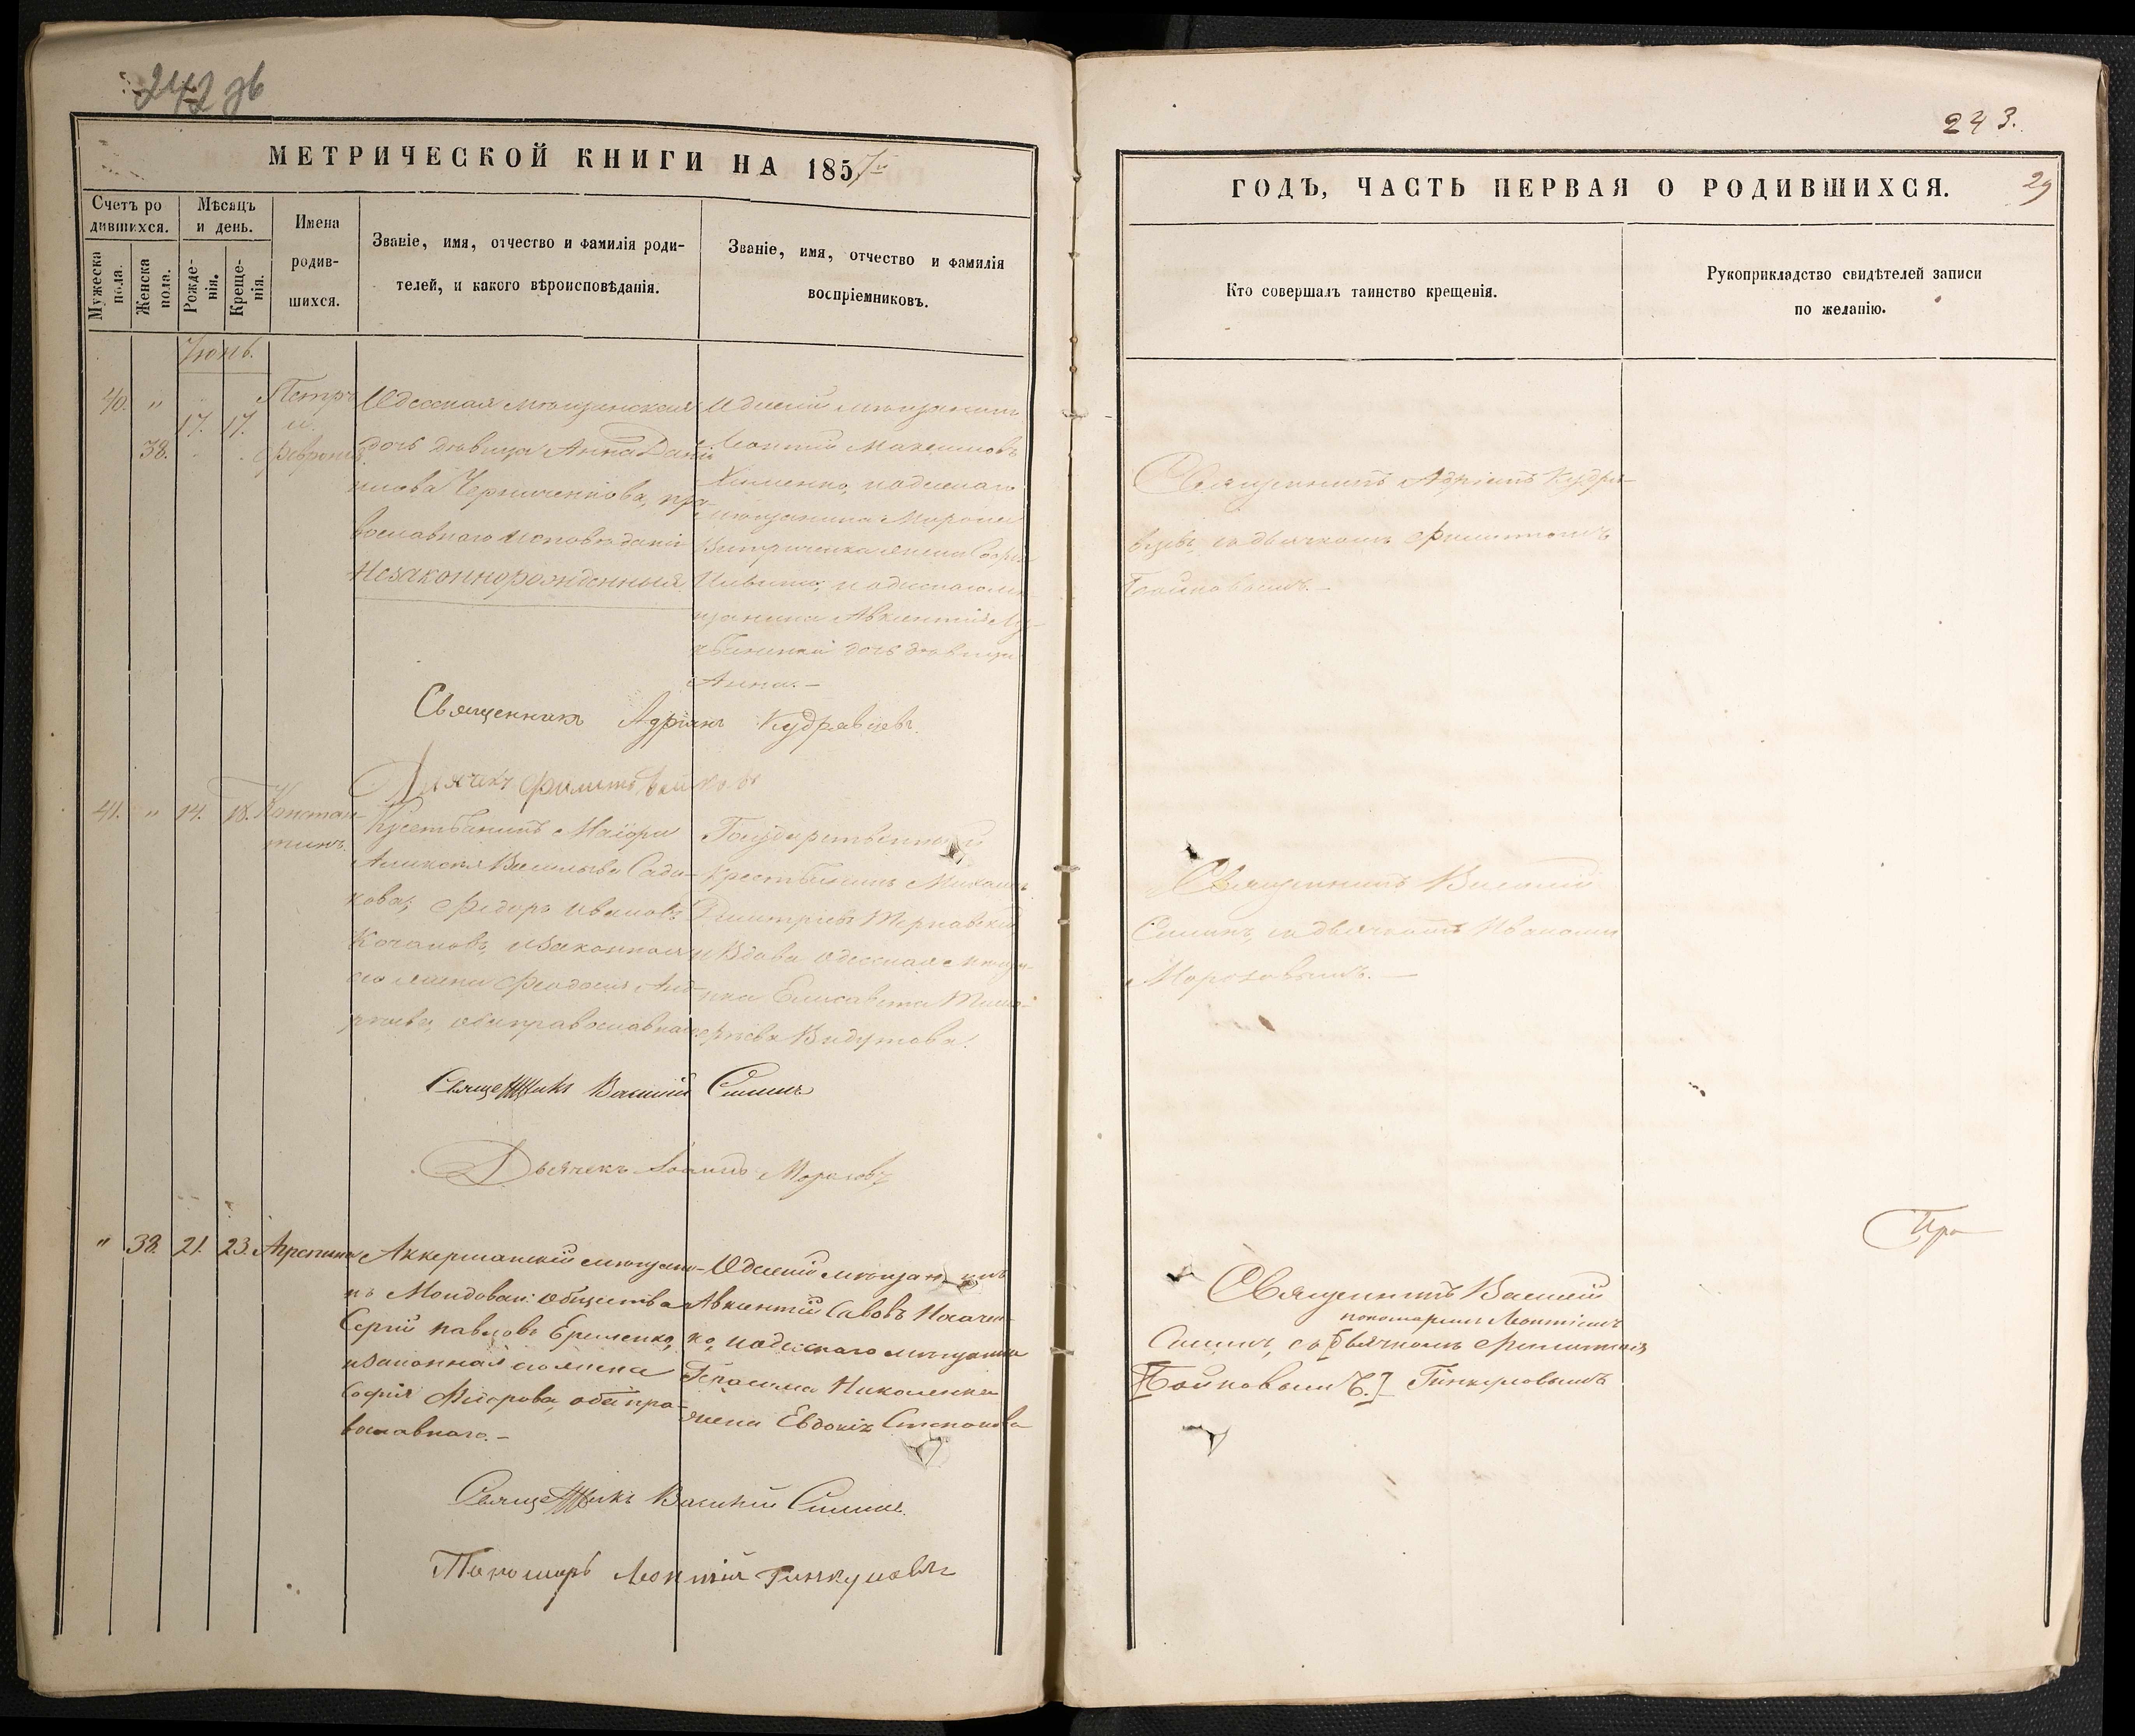 242 зв
МЕТРИЧЕСКОЙ КНИГИ НА 1857
Счетъ ро
дившихся.
Мужеска
пола.
Женска
пола.
Мѣсяцъ
и день.
Рожде-
нія.
Креще-
нія.
Имена
родив-
шихся.
Званіе, имя, отчество и фамилія роди-
телей, и какого вѣроисповѣданія.
Званіе, имя, отчество и фамилія
воспріемниковъ.
Іюнь.
40. "
38.
17. 17.
Петръ
и
Февронія
Одесская мѣщанская
дочь дѣвица Анна Дані
илова Черниченкова, пра-
вославнаго исповѣданія
Незаконнорожденныя
Одесскій мѣщанинъ
Леонтій Максимовъ
одесскаго
мѣщанина Мирона
жена
и одесскаго мѣ
щанина Авксентія
дочь дѣвица
Анна.—
Священникъ Адріанъ Кудрявцевъ.
Дьячекъ Филиппъ Бойковъ
41. " 14. 18. Констан-
тинъ.
Крестьянинъ Маіора
Алексѣя Васильева Сади-
кова, Федоръ Ивановъ
Кочановъ, и законная
его жена Феодосія Анд-
реева, оба православнаго.
Государственный
крестьянинъ Михаилъ
Дмитріевъ Терновскій
и Вдова Одесская мѣща-
нка Елисавета Тимо-
феева Видутова.
Священникъ Василій Симинъ
Дьячекъ Іоаннъ Морозовъ
" 39. 21. 23. Агрепина
Аккерманскій мѣщани-
нъ Молдован: общества
Сергій Павловъ Еременко,
и законная его жена
Софія Фёдорова, оба пра-
вославнаго.—
Одесскій мѣщанинъ
Авксентій Савовъ Носачен-
ко, и одесскаго мѣщанина
Герасима Николенка
жена Евдокія Степанова
Священникъ Василій Симинъ
Пономарь Леонтій Гинкуловъ
243.
29
ГОДЪ, ЧАСТЬ ПЕРВАЯ О РОДИВШИХСЯ.
Кто совершалъ таинство крещенія.
Рукоприкладство свидѣтелей записи
по желанію.
Священникъ Адріанъ Кудря-
вцевъ, съ дьячкомъ Филиппомъ
Бойковымъ.—
Священникъ Василій
Симинъ, съ дьячкомъ Иваномъ
Морозовымъ.—
При
Священникъ Василій
пономаремъ Леонтіемъ
Симинъ, съ [дьячкомъ Филиппомъ
Бойковымъ.] Гинкуловымъ